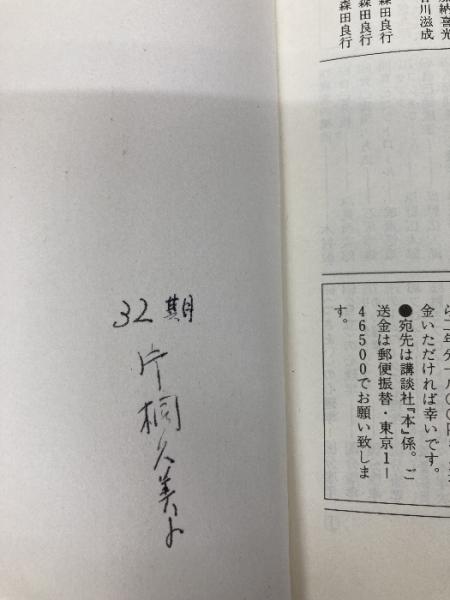 納喜光
川滋成
森田良行
森田良行
森田良行
金いただければ幸いです。
●宛先は講談社『本』係。ご
送金は郵便振替・東京1-
46500でお願い致しま
す。
32期
片桐久美子